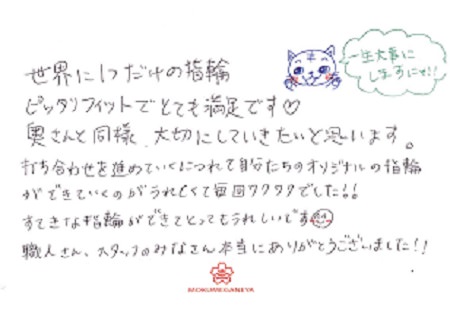 世界に1つだけの指輪
ピッタリフィットでとても満足です♡
奥さんと同様、大切にしていきたいと思います。
打ち合わせを進めていくにつれて自分たちのオリジナルの指輪
ができていくのがうれしくて毎回ワクワクでした!!
すてきな指輪ができてとってもうれしいです
職人さん、スタッフのみなさん本当にありがとうございました!!
一生大事に
しますにゃ!!
MOKUMEGANEYA